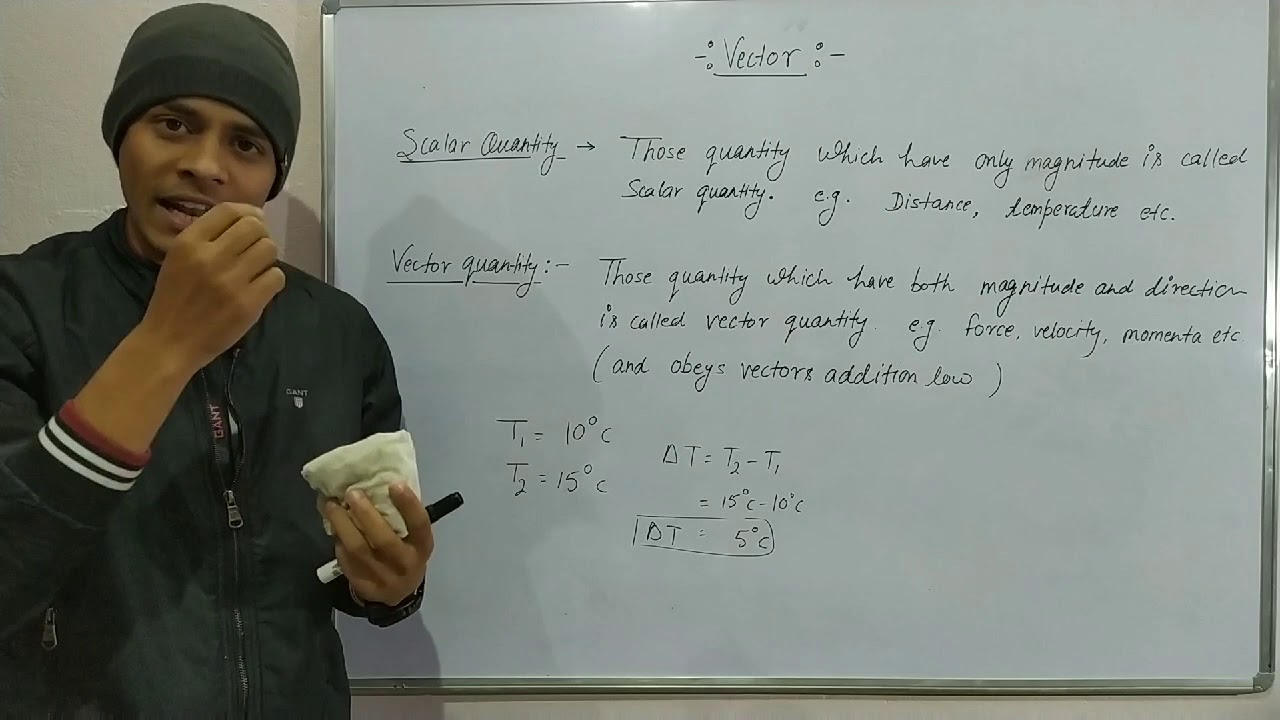 -: Vector :-
Scalar Quantity → Those quantity which have only magnitude is called
Scalar quantity. e.g. Distance, temperature etc.
Vector quantity :- Those quantity which have both magnitude and direction
is called vector quantity. e.g. force, velocity, momenta etc.
(and obeys vectors addition low)
T₁ = 10°C
T₂ = 15°C
ΔT = T₂ - T₁
= 15°C - 10°C
ΔT = 5°C
GANT
GANT